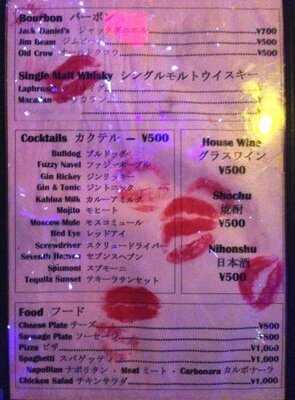 Bourbon バーボン
Jack Daniel's ジャックダニエル ¥700
Jim Beam ジムビーム ¥500
Old Crow ¥500
Single Malt Whisky シングルモルトウイスキー
Laphroaig
Macallan
Cocktails カクテル — ¥500
Bulldog ブルドッグ
Fuzzy Navel ファジーネーブル
Gin Rickey ジンリッキー
Gin & Tonic ジントニック
Kahlua Milk カルーアミルク
Mojito モヒート
Moscow Mule モスコミュール
Red Eye レッドアイ
Screwdriver スクリュードライバー
Seventh Heaven セブンスヘブン
Spumoni スプモーニ
Tequila Sunset テキーラサンセット
House Wine
グラスワイン
¥500
Shochu
焼酎
¥500
Nihonshu
日本酒
¥500
Food フード
Cheese Plate チーズ ¥800
Sausage Plate ソーセージ ¥800
Pizza ピザ ¥1,000
Spaghetti スパゲッティ ¥1,000
Napolitan ナポリタン - Meat ミート - Carbonara カルボナーラ
Chicken Salad チキンサラダ ¥1,000